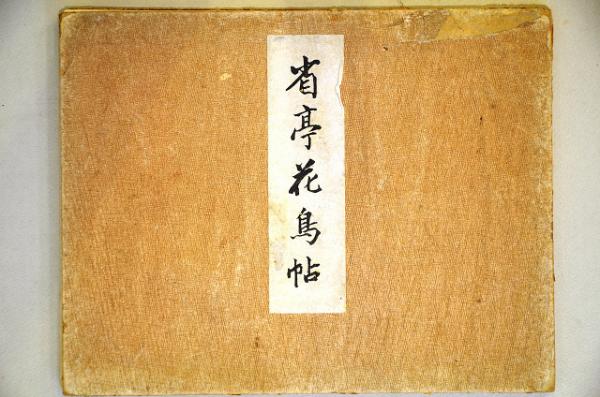 省亭花鳥帖